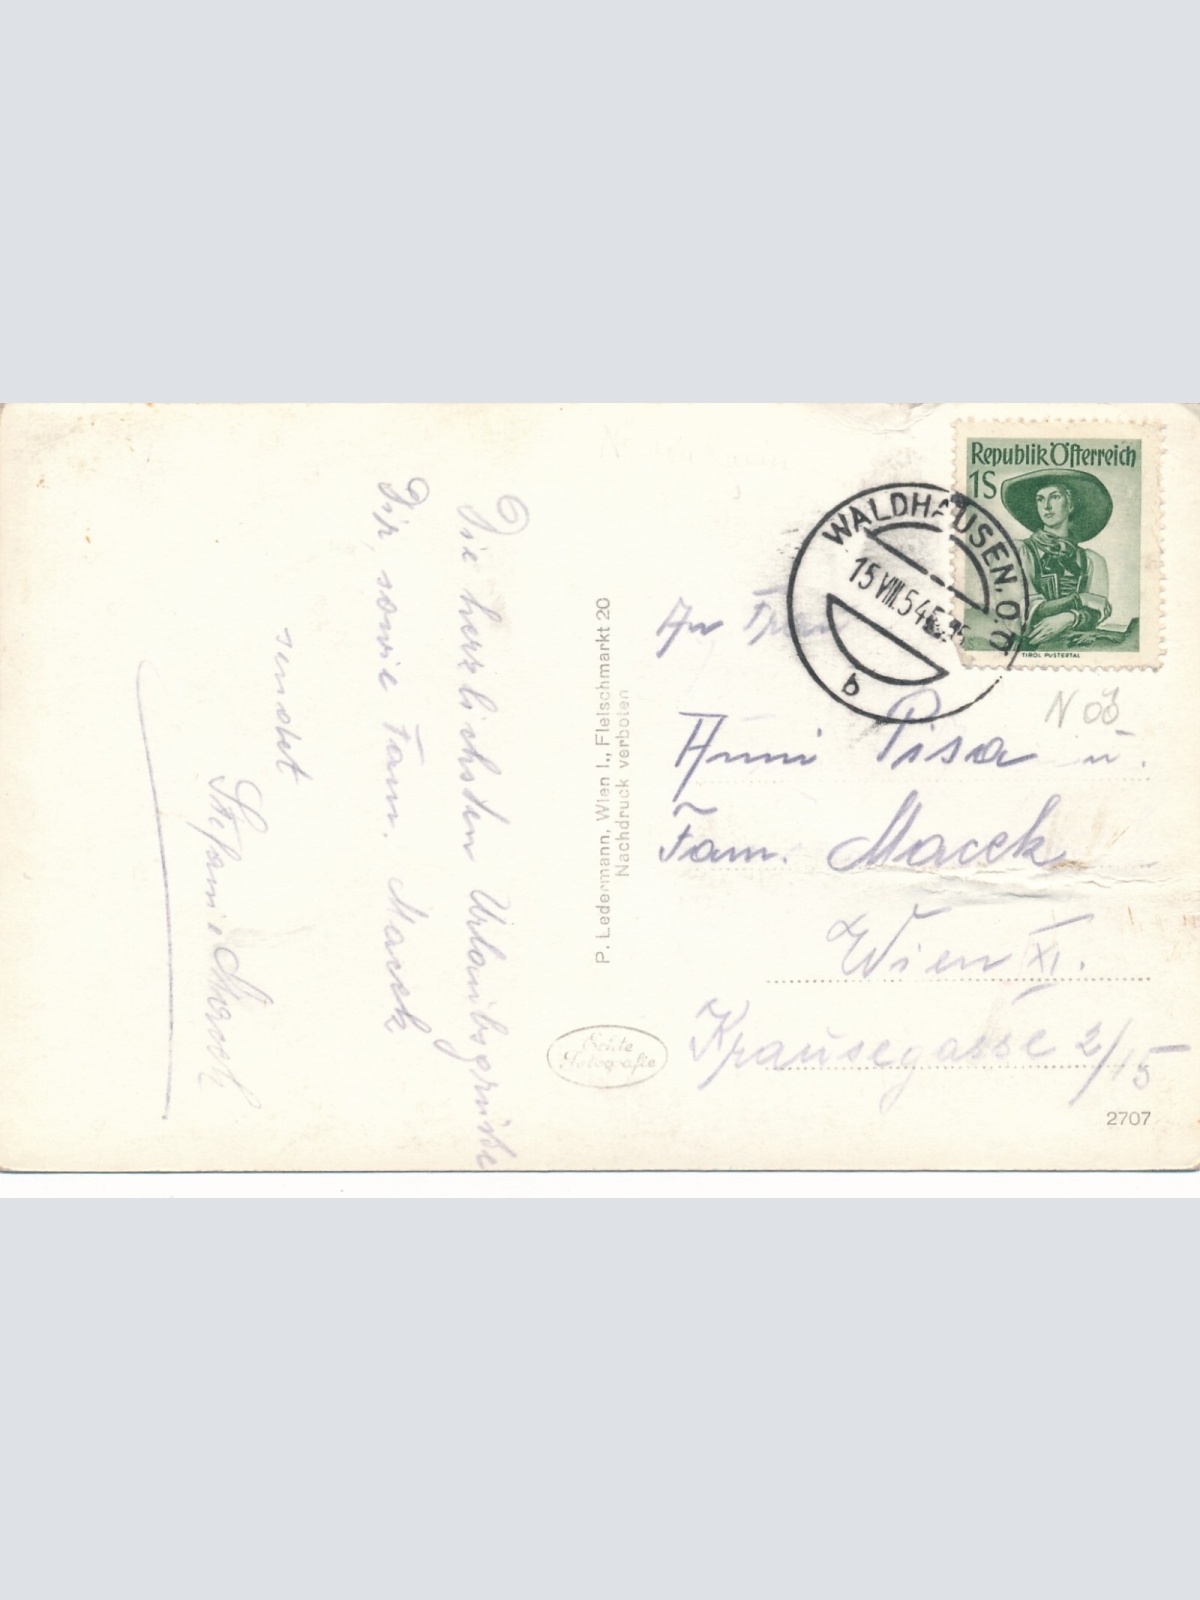 Die herzlichsten Urlaubsgrüße
Dir, sowie Fam. Macek
sendet
Stefanie
P. Ledermann, Wien I., Fleischmarkt 20
Nachdruck verboten
Echte
Fotografie
Republik Österreich
1S
TIROL PUSTERTAL
WALDHAUSEN, O.Ö.
15 VIII.54
b
N OÖ
An Frau
Anni Pisa u.
Fam. Macek
Wien XI.
Krausegasse 2/15
2707